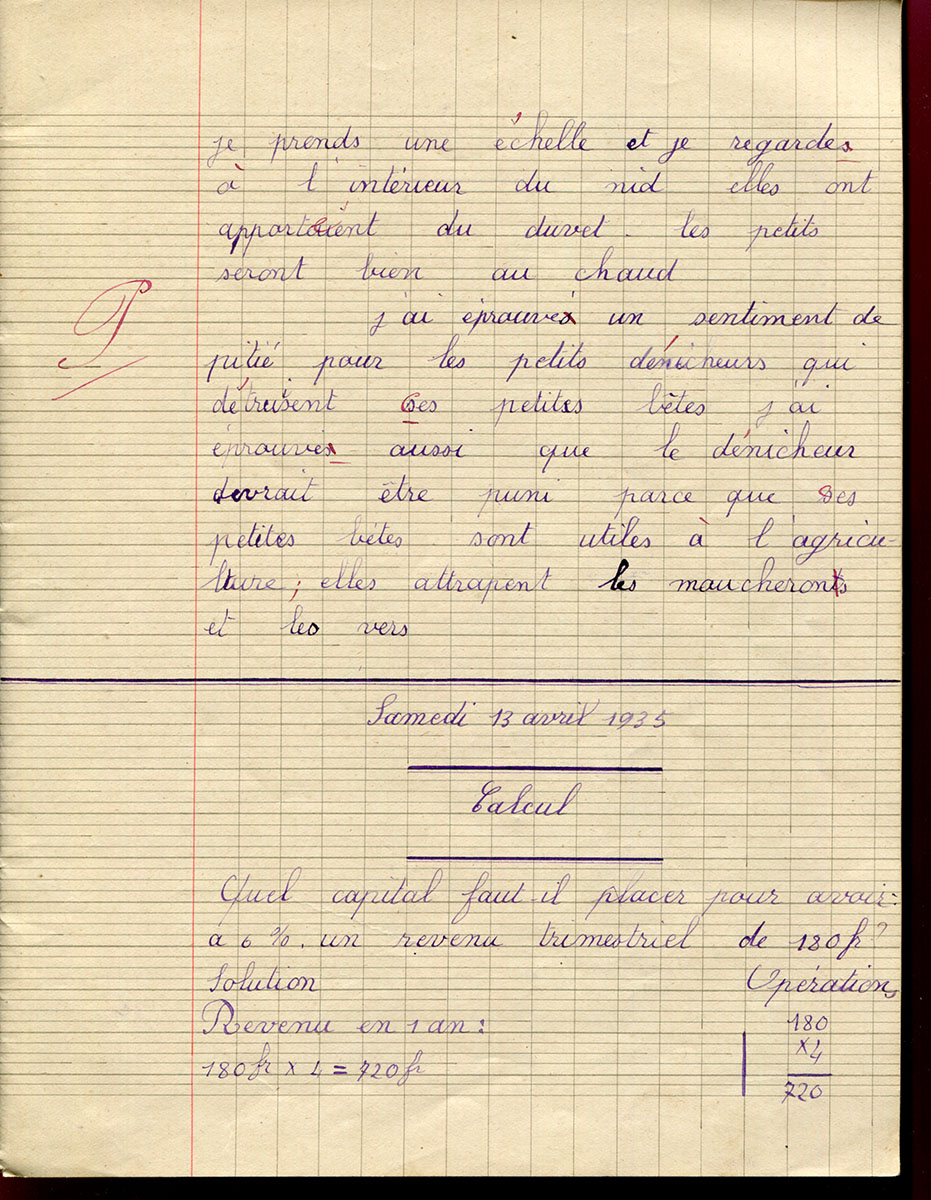 je prends une échelle et je regardes
à l'intérieur du nid elles ont
apportèrent du duvet. les petits
seront bien au chaud
j'ai éprouvés un sentiment de
P
pitié pour les petits dénicheurs qui
détruisent ces petites bêtes j'ai
éprouvés aussi que le dénicheur
devrait être puni parce que ses
petites bêtes sont utiles à l'agricu-
lture; elles attrapent les moucheronts
et les vers
Samedi 13 avril 1935
Calcul
Quel capital faut-il placer pour avoir:
a 6%. un revenu trimestriel de 180fr?
Solution Opérations
Revenu en 1 an: 180
×4
180fr × 4 = 720fr
720